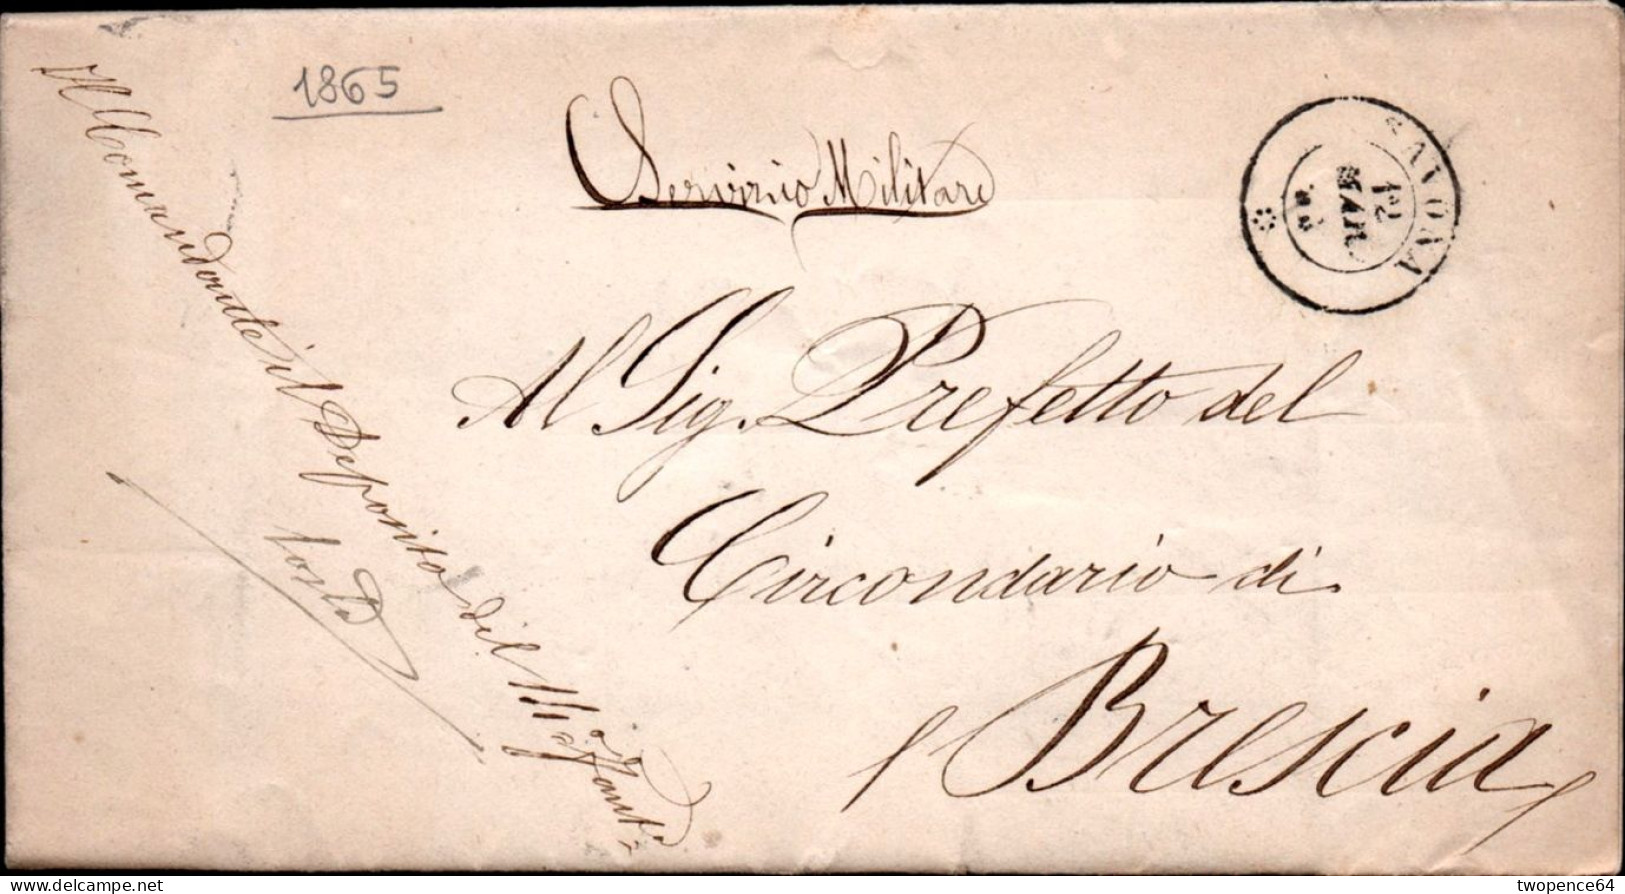 1865
Servizio Militare
SAVONA
12
MAR
Al Sig. Prefetto del
Circondario di
Brescia
Il Comandante il Deposito del
twopence64
delcampe.net